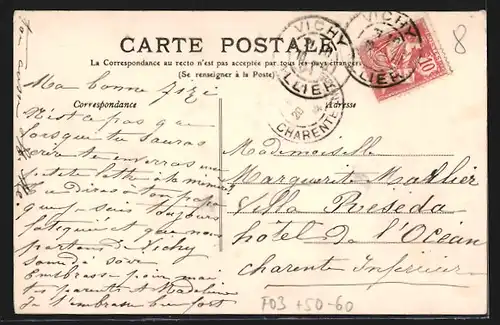 CARTE POSTALE
La Correspondance au recto n'est pas acceptée par tous les pays étrangers
(Se renseigner à la Poste)
Correspondance
Adresse
VICHY
ALLIER
VICHY
ALLIER
CHARENTE
10
8
Ma bonne
N'est ce pas que
lorsque tu sauras
écrire tu enverras une
petite lettre à ta mimi
Tu diras à ton papa
que je suis toujours
fatiguée et que nous
partons de Vichy
samedi soir
Embrasse pour moi
tes parents et Madeleine
Je t'embrasse bien fort
Mademoiselle
Marguerite Mallier
Villa Reseda
hôtel De l'Ocean
charente Inférieure
F03 +50-60